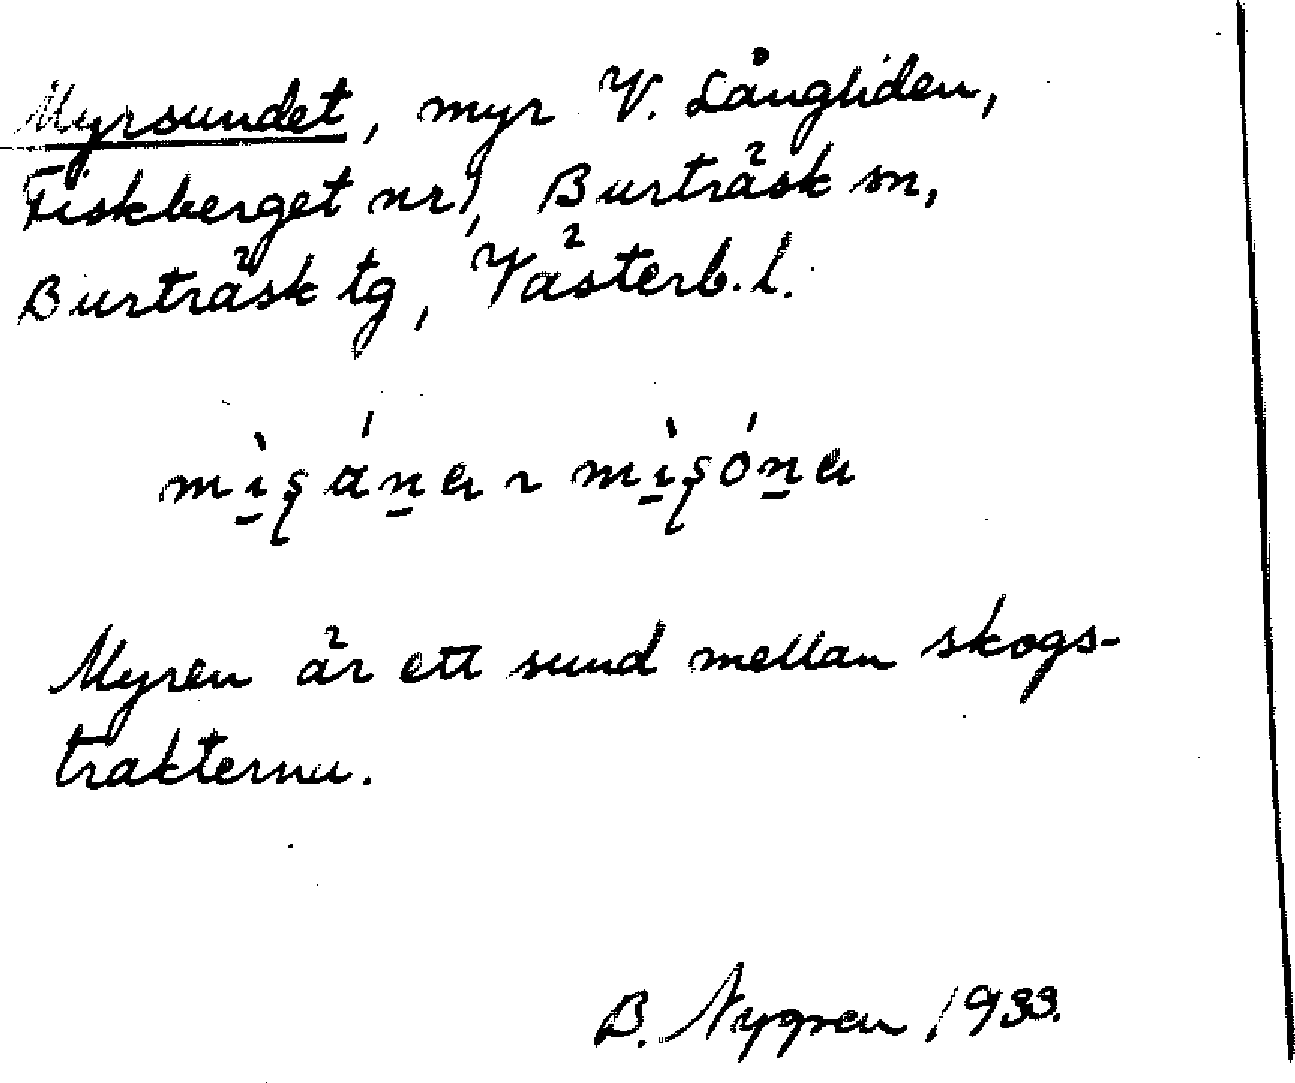 Myrsundet, myr V. Långliden,
Fiskberget nr 1, Burträsk sn,
Burträsk tg, Västerb. l.
Myren är ett sund mellan skogs-
trakterna.
B. Nygren 1933.